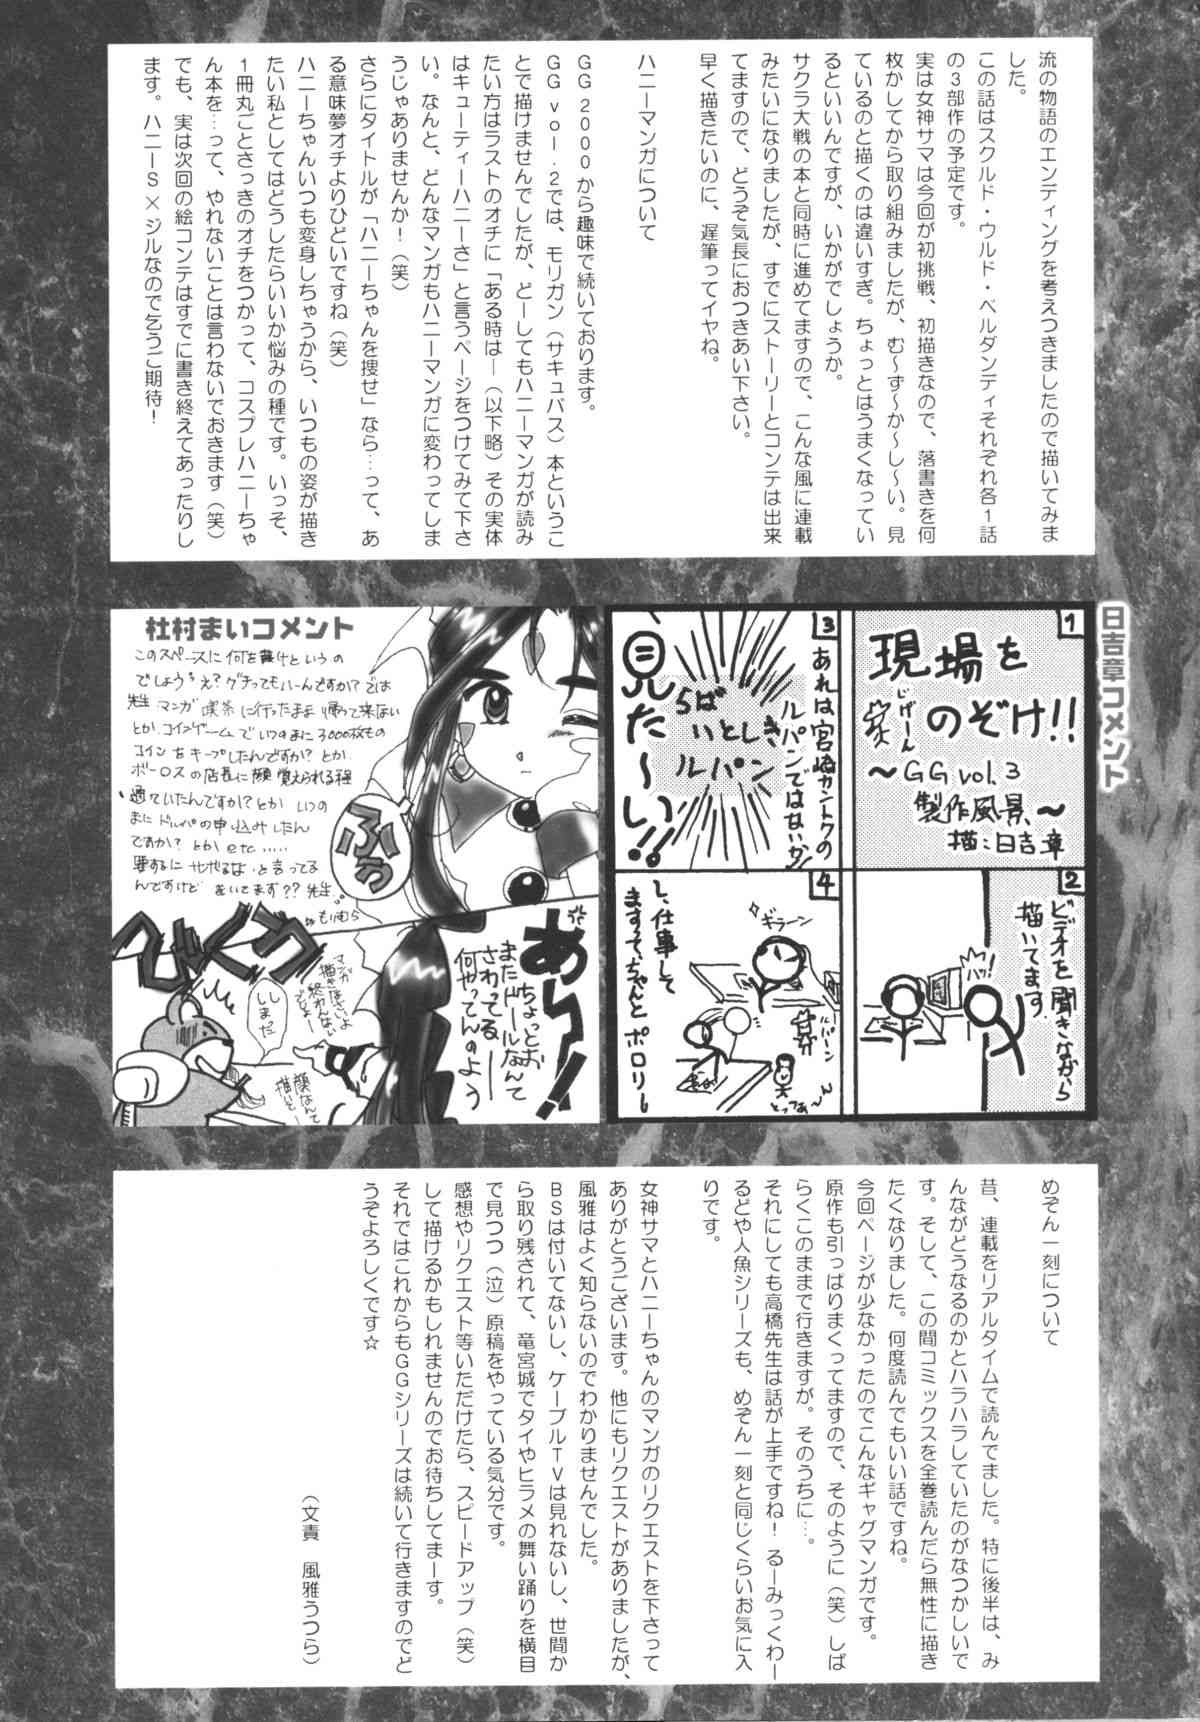 流の物語のエンディングを考えつきましたので描いてみま
した。
この話はスクルド・ウルド・ベルダンディそれぞれ各1話
の3部作の予定です。
実は女神サマは今回が初挑戦、初描きなので、落書きを何
枚かしてから取り組みましたが、む～ず～か～し～い。見
ているのと描くのは違いすぎ。ちょっとはうまくなってい
るといいんですが、いかがでしょうか。
サクラ大戦の本と同時に進めてますので、こんな風に連載
みたいになりましたが、すでにストーリーとコンテは出来
てますので、どうぞ気長におつきあい下さい。
早く描きたいのに、遅筆ってイヤね。
ハニーマンガについて
GG2000から趣味で続いております。
GGvol.2では、モリガン(サキュバス)本というこ
とで描けませんでしたが、どーしてもハニーマンガが読み
たい方はラストのオチに「ある時は—(以下略)その実体
はキューティーハニーさ」と言うページをつけてみて下さ
い。なんと、どんなマンガもハニーマンガに変わってしま
うじゃありませんか！(笑)
さらにタイトルが「ハニーちゃんを捜せ」なら…って、あ
る意味夢オチよりひどいですね(笑)
ハニーちゃんいつも変身しちゃうから、いつもの姿が描き
たい私としてはどうしたらいいか悩みの種です。いっそ、
1冊丸ごとさっきのオチをつかって、コスプレハニーちゃ
ん本を…って、やれないことは言わないでおきます(笑)
でも、実は次回の絵コンテはすでに書き終えてあったりし
ます。ハニーS×ジルなので乞うご期待！
日吉章コメント
1
現場を
のぞけ!!
じげーん
～GG vol.3
製作風景～
描:日吉章
2
ビデオを聞きながら
描いてます
3
あれは宮崎カントクの
ルパンではないか
らぱ
いとしき
ルパン
見た～い!!
4
ギラーン
ルパーン
とっつぁ～ん
し、仕事して
ますって、ちゃんと
ポロリー
杜村まいコメント
このスペースに何を書けというの
でしょう？え？グチってもいーんですか？では
先生マンガ喫茶に行ったまま帰って来ない
とかコインゲームでいつのまに3000枚もの
コインをキープしたんですか？とか
ボーロスの店長に顔覚えられる程
通ていたんですか？とかいつの
まにドルパの申込みしたん
ですか？とかetc.....
要するにサボるなと言ってる
んですけどきいてます？？先生
ふぅ
あーー!
ちょっとお
またドールなんて
さわってるー
何やってんのよう
びくっ
しまだ
めぞん一刻について
昔、連載をリアルタイムで読んでました。特に後半は、み
んながどうなるのかとハラハラしていたのがなつかしいで
す。そして、この間コミックスを全巻読んだら無性に描き
たくなりました。何度読んでもいい話ですね。
今回ページが少なかったのでこんなギャグマンガです。
原作も引っぱりまくってますので、そのように(笑)しば
らくこのままで行きますが。そのうちに…。
それにしても高橋先生は話が上手ですね！るーみっくわー
るどや人魚シリーズも、めぞん一刻と同じくらいお気に入
りです。
女神サマとハニーちゃんのマンガのリクエストを下さって
ありがとうございます。他にもリクエストがありましたが、
風雅はよく知らないのでわかりませんでした。
BSは付いてないし、ケーブルTVは見れないし、世間か
ら取り残されて、竜宮城でタイやヒラメの舞い踊りを横目
で見つつ(泣)原稿をやっている気分です。
感想やリクエスト等いただけたら、スピードアップ(笑)
して描けるかもしれませんのでお待ちしてまーす。
それではこれからもGGシリーズは続いて行きますのでど
うぞよろしくです☆
(文責　風雅うつら)